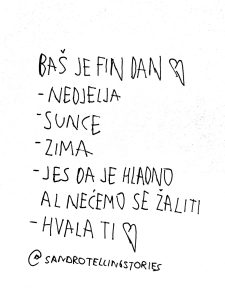 BAŠ JE FIN DAN ♡
- NEDJELJA
- SUNCE
- ZIMA
- JES DA JE HLADNO
AL NEĆEMO SE ŽALITI
- HVALA TI ♡
@SANDROTELLINGSTORIES